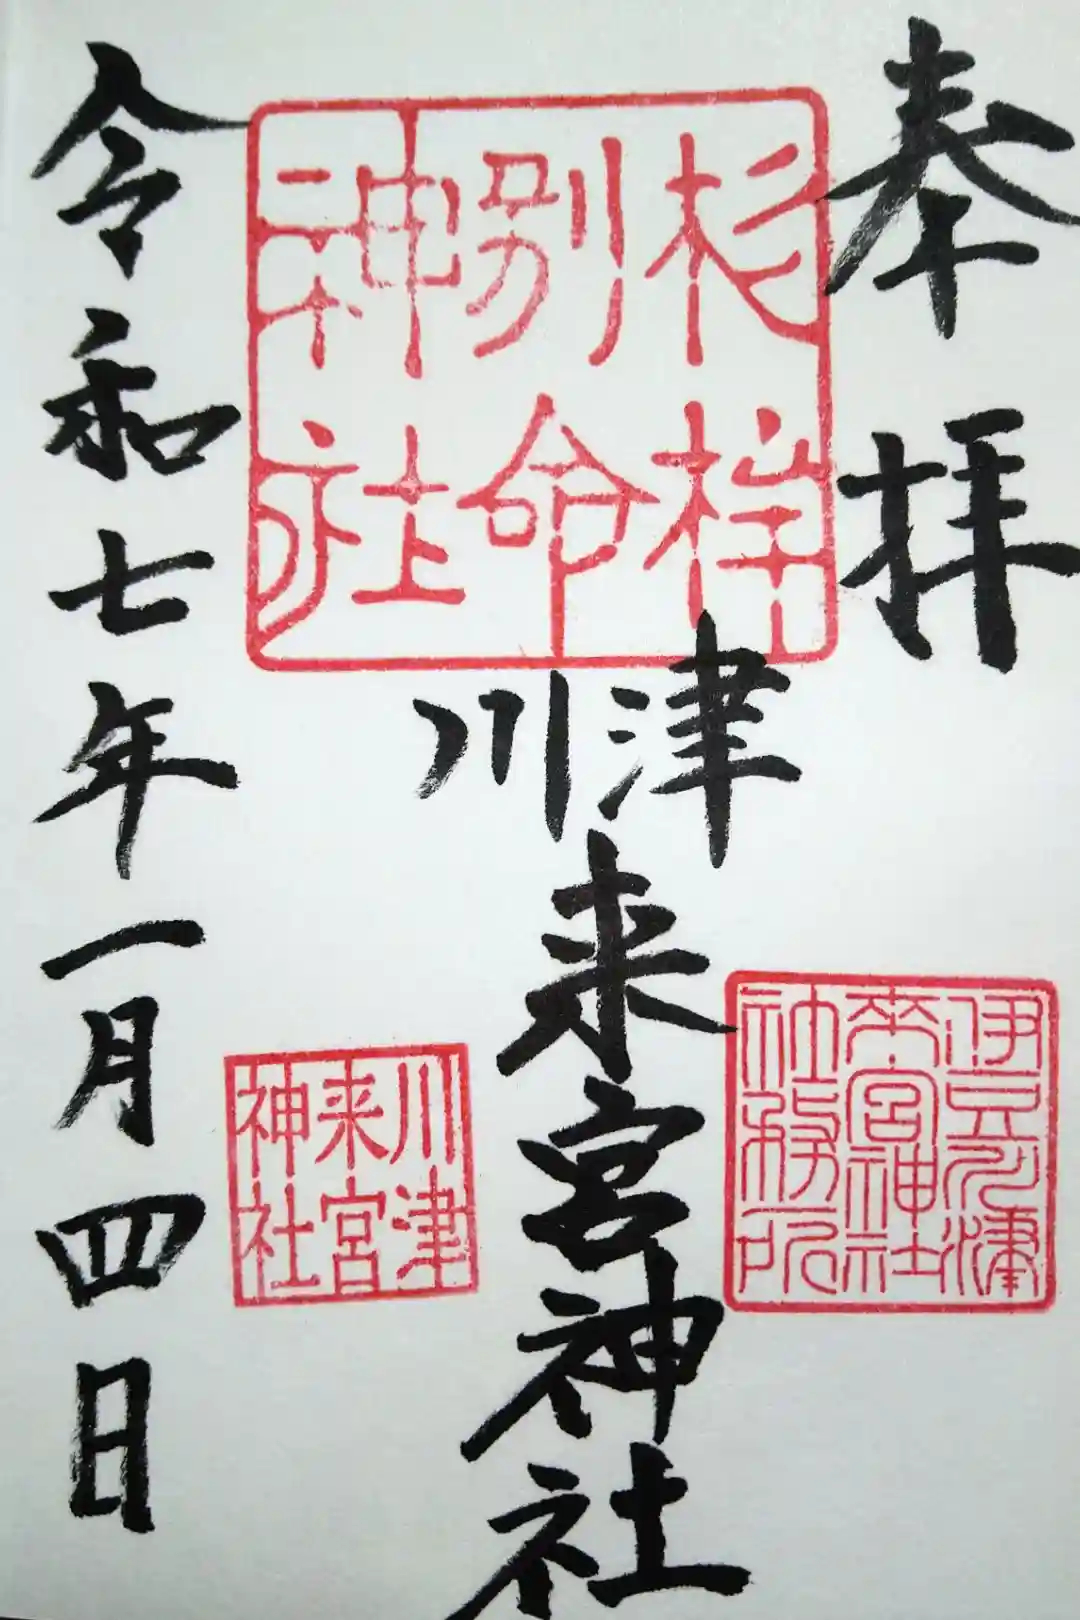 奉拝
杉桙
別命
神社
伊豆川津
來宮神社
社務所
川津
来宮神社
川津
来宮
神社
令和七年一月四日